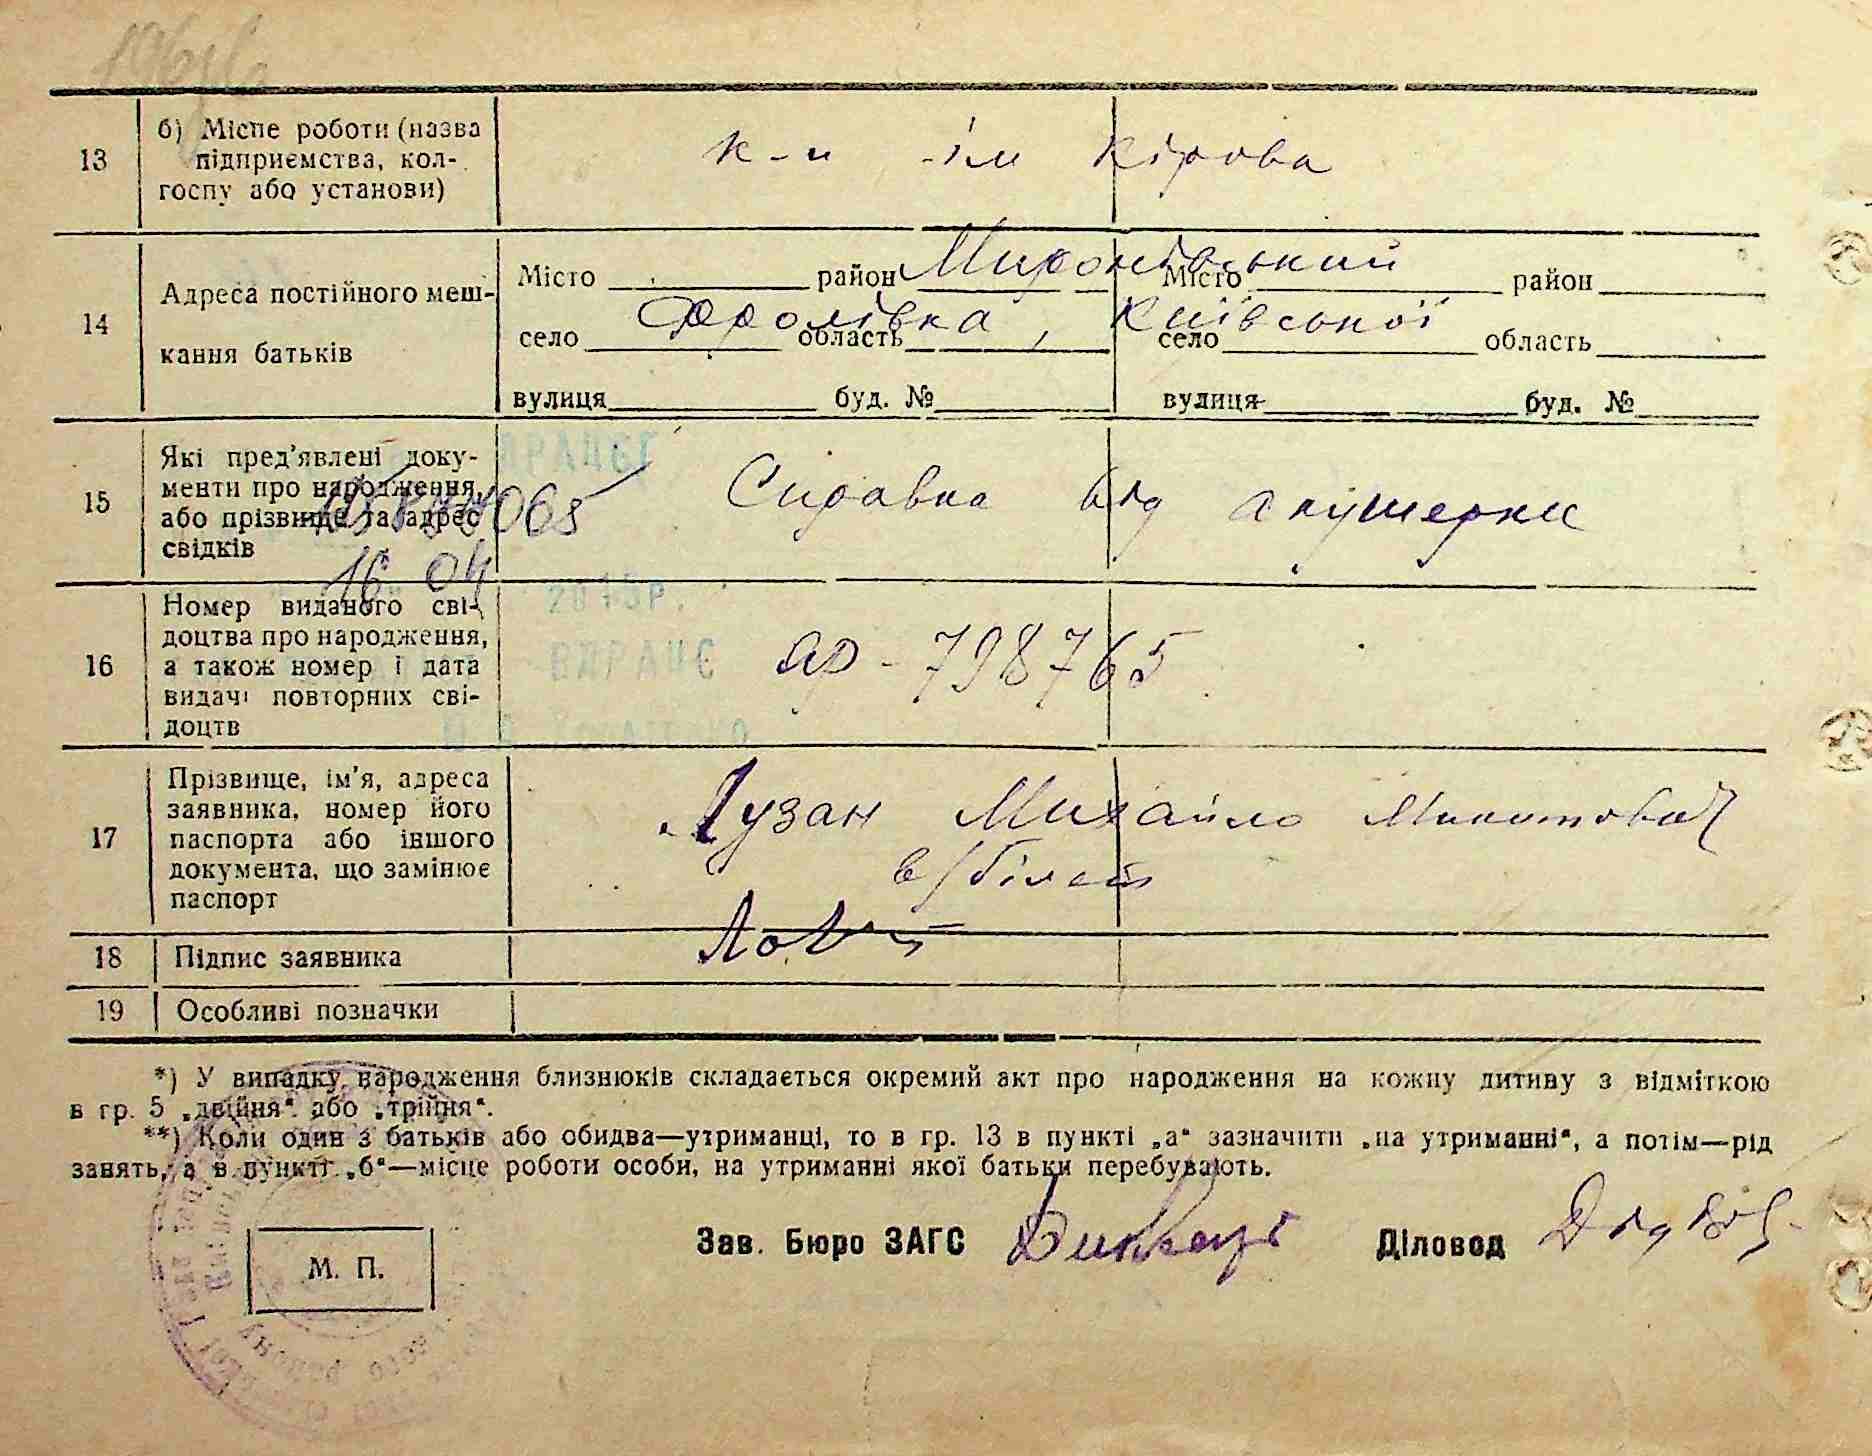 13
б) Місце роботи (назва
підприємства, кол-
госпу або установи)
к-п ім Кірова
14
Адреса постійного меш-
кання батьків
Місто район Миронівський Місто район
село Фролівка, область Київської село область
вулиця буд. № вулиця буд. №
15
Які пред'явлені доку-
менти про народження,
або прізвище та адрес
свідків
Справка від акушерки
16 04
2013р.
16
Номер виданого сві-
доцтва про народження,
а також номер і дата
видачі повторних сві-
доцтв
ВДРАЦС
ЯР-798765
17
Прізвище, ім'я, адреса
заявника, номер його
паспорта або іншого
документа, що замінює
паспорт
Лузан Михайло Микитович
в/білет
18
Підпис заявника
19
Особливі позначки
*) У випадку народження близнюків складається окремий акт про народження на кожну дитину з відміткою
в гр. 5 „двійня“ або „трійня“.
**) Коли один з батьків або обидва—утриманці, то в гр. 13 в пункті „а“ зазначити „на утриманні“, а потім—рід
занять, а в пункті „б“—місце роботи особи, на утриманні якої батьки перебувають.
Зав. Бюро ЗАГС Діловод
М. П.